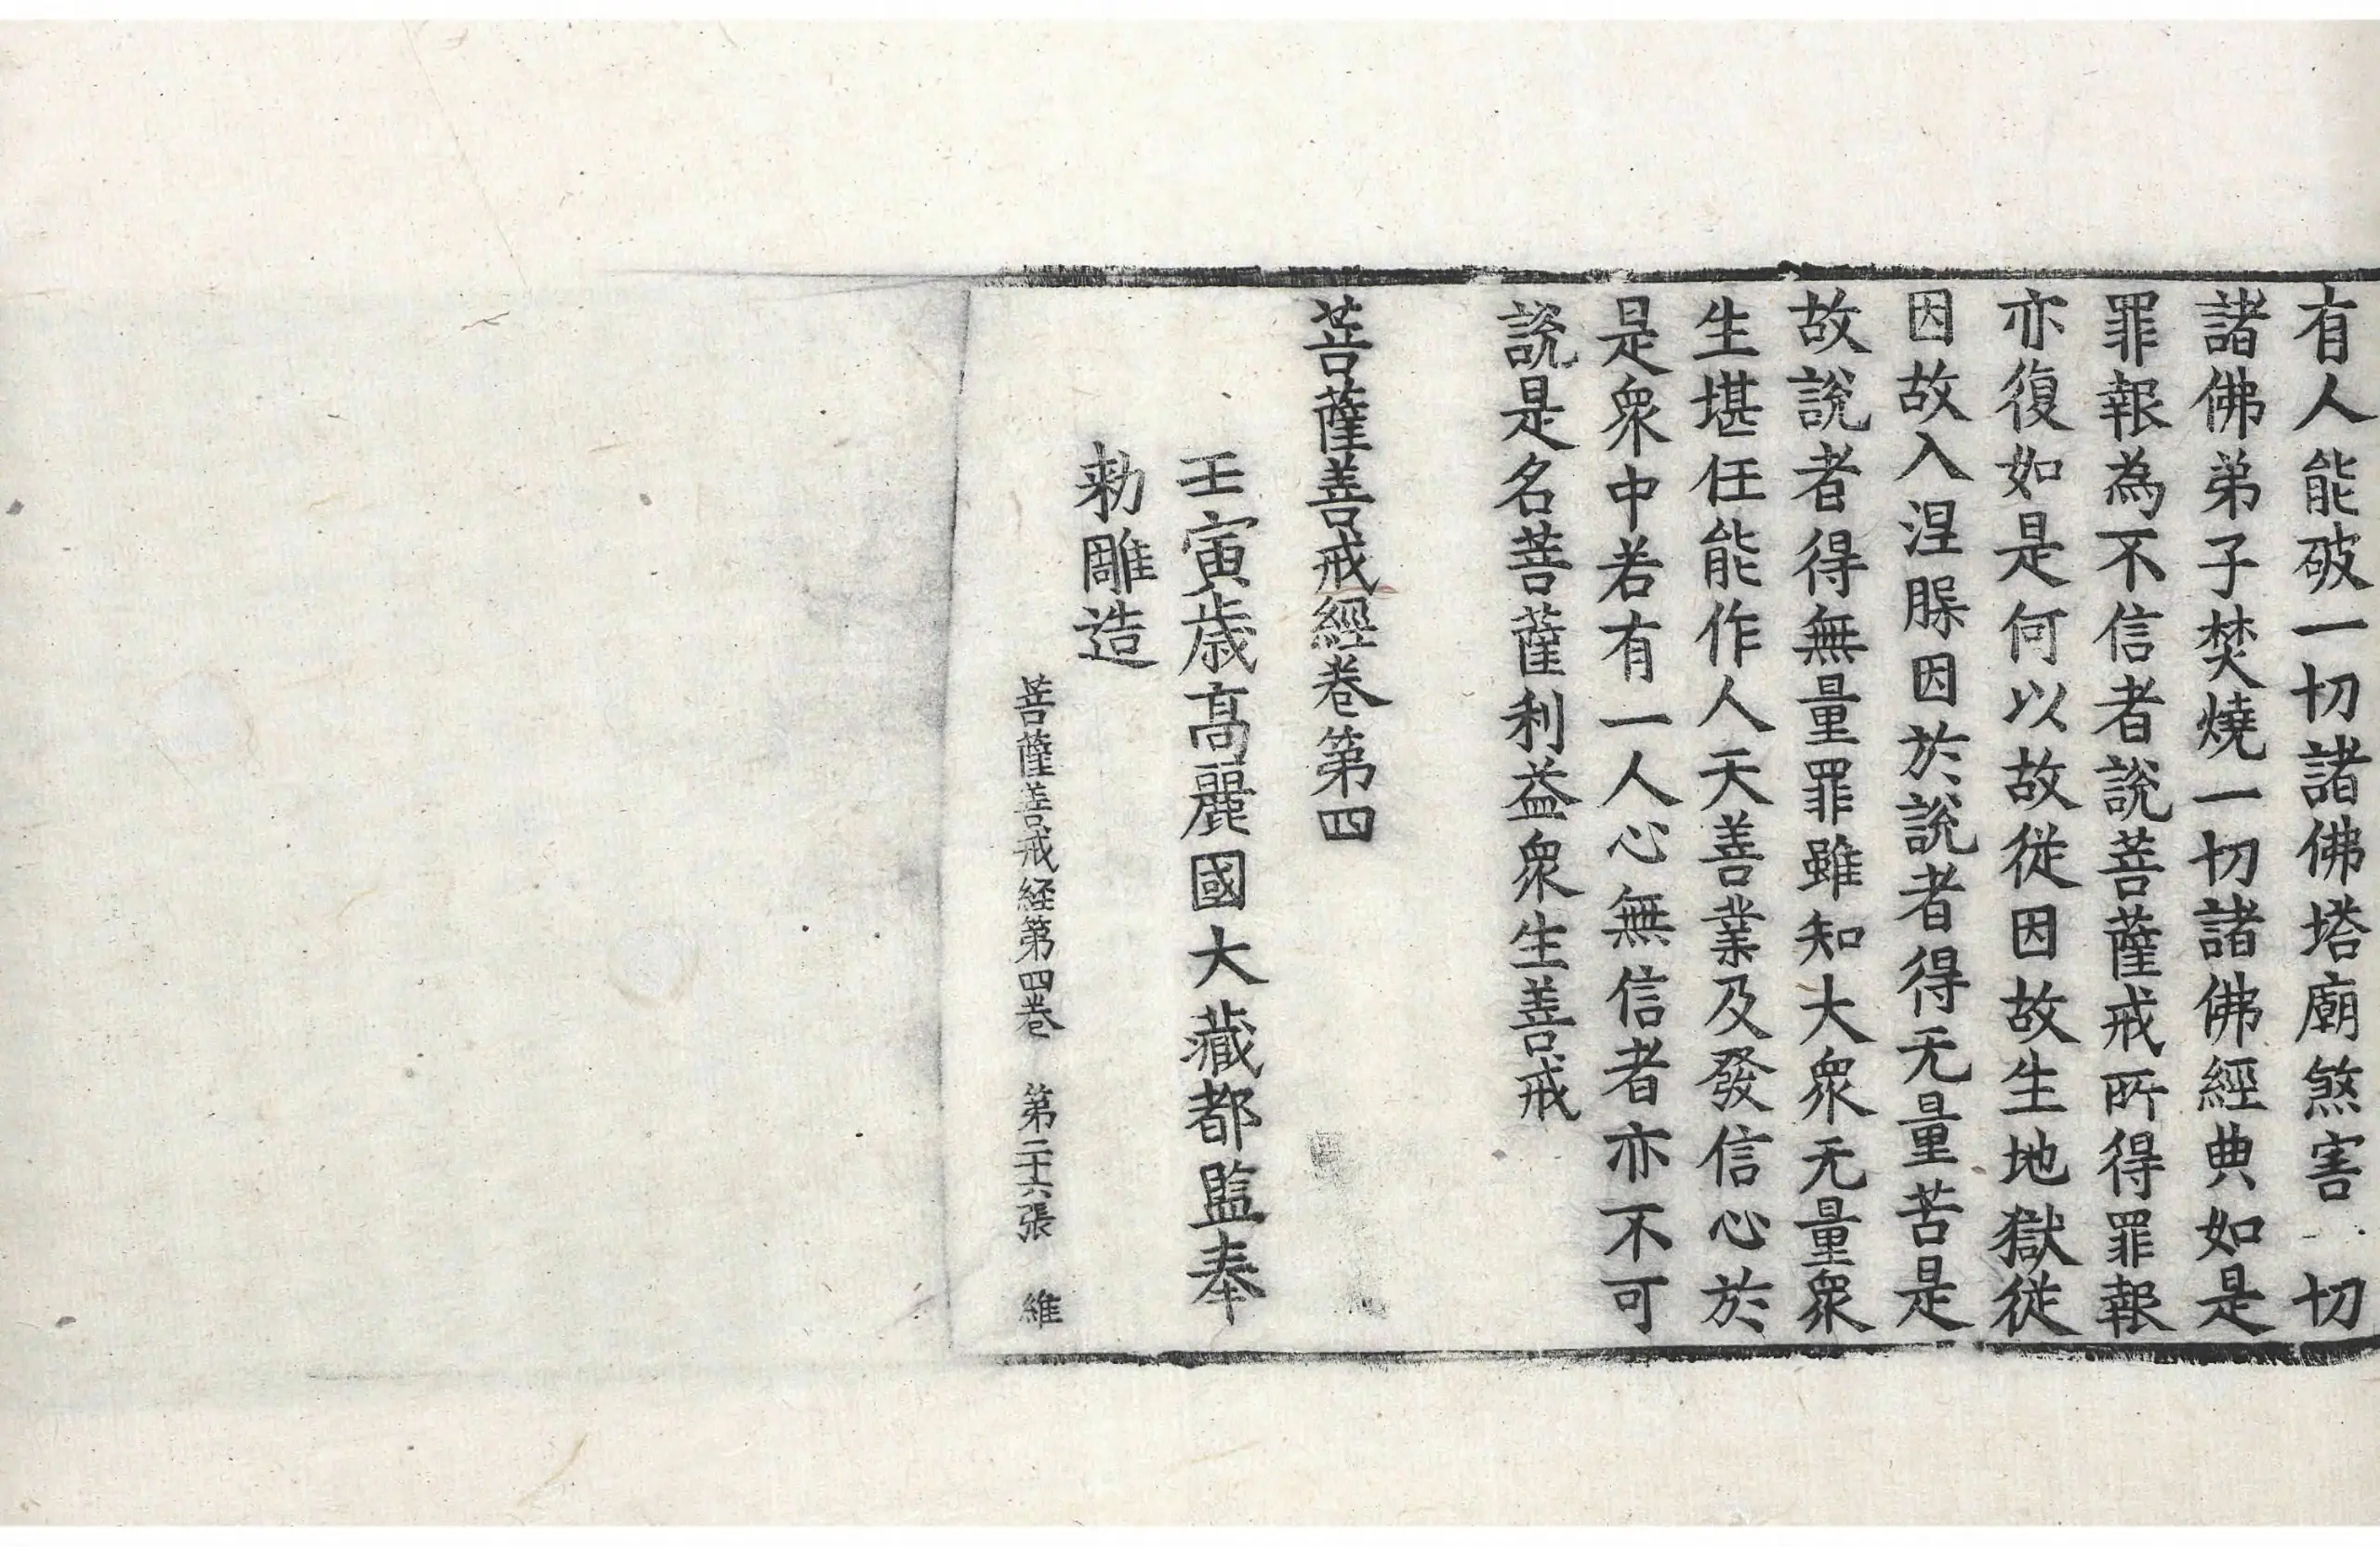 有人能破一切諸佛塔廟煞害 切
諸佛弟子焚燒一切諸佛經典如是
罪報為不信者說菩薩戒所得罪報
亦復如是何以故從因故生地獄從
因故入涅槃因於說者得无量苦是
故說者得無量罪雖知大衆无量衆
生堪任能作人天善業及發信心於
是衆中若有一人心無信者亦不可
說是名菩薩利益衆生善戒
菩薩善戒經卷第四
壬寅歲高麗國大藏都監奉
勑雕造
菩薩善戒経第四卷 第二十六張 維